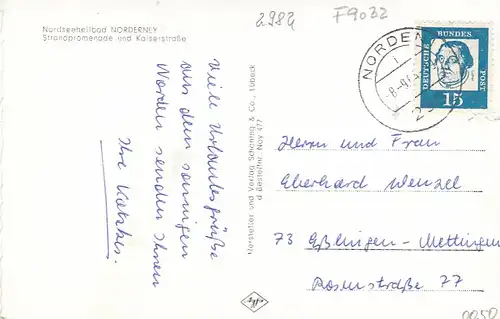 Nordseeheilbad NORDERNEY
Strandpromenade und Kaiserstraße
2982
F9032
Viele Urlaubsgrüße
aus dem sonnigen
Norden senden Ihnen
Ihre
Hersteller und Verlag Schöning & Co., Lübeck
Bestellnr. Noy 477
NORDEN
DEUTSCHE BUNDES POST
15
Herrn und Frau
Eberhard Wenzel
73 Eßlingen-Mettingen
Rosenstraße 77